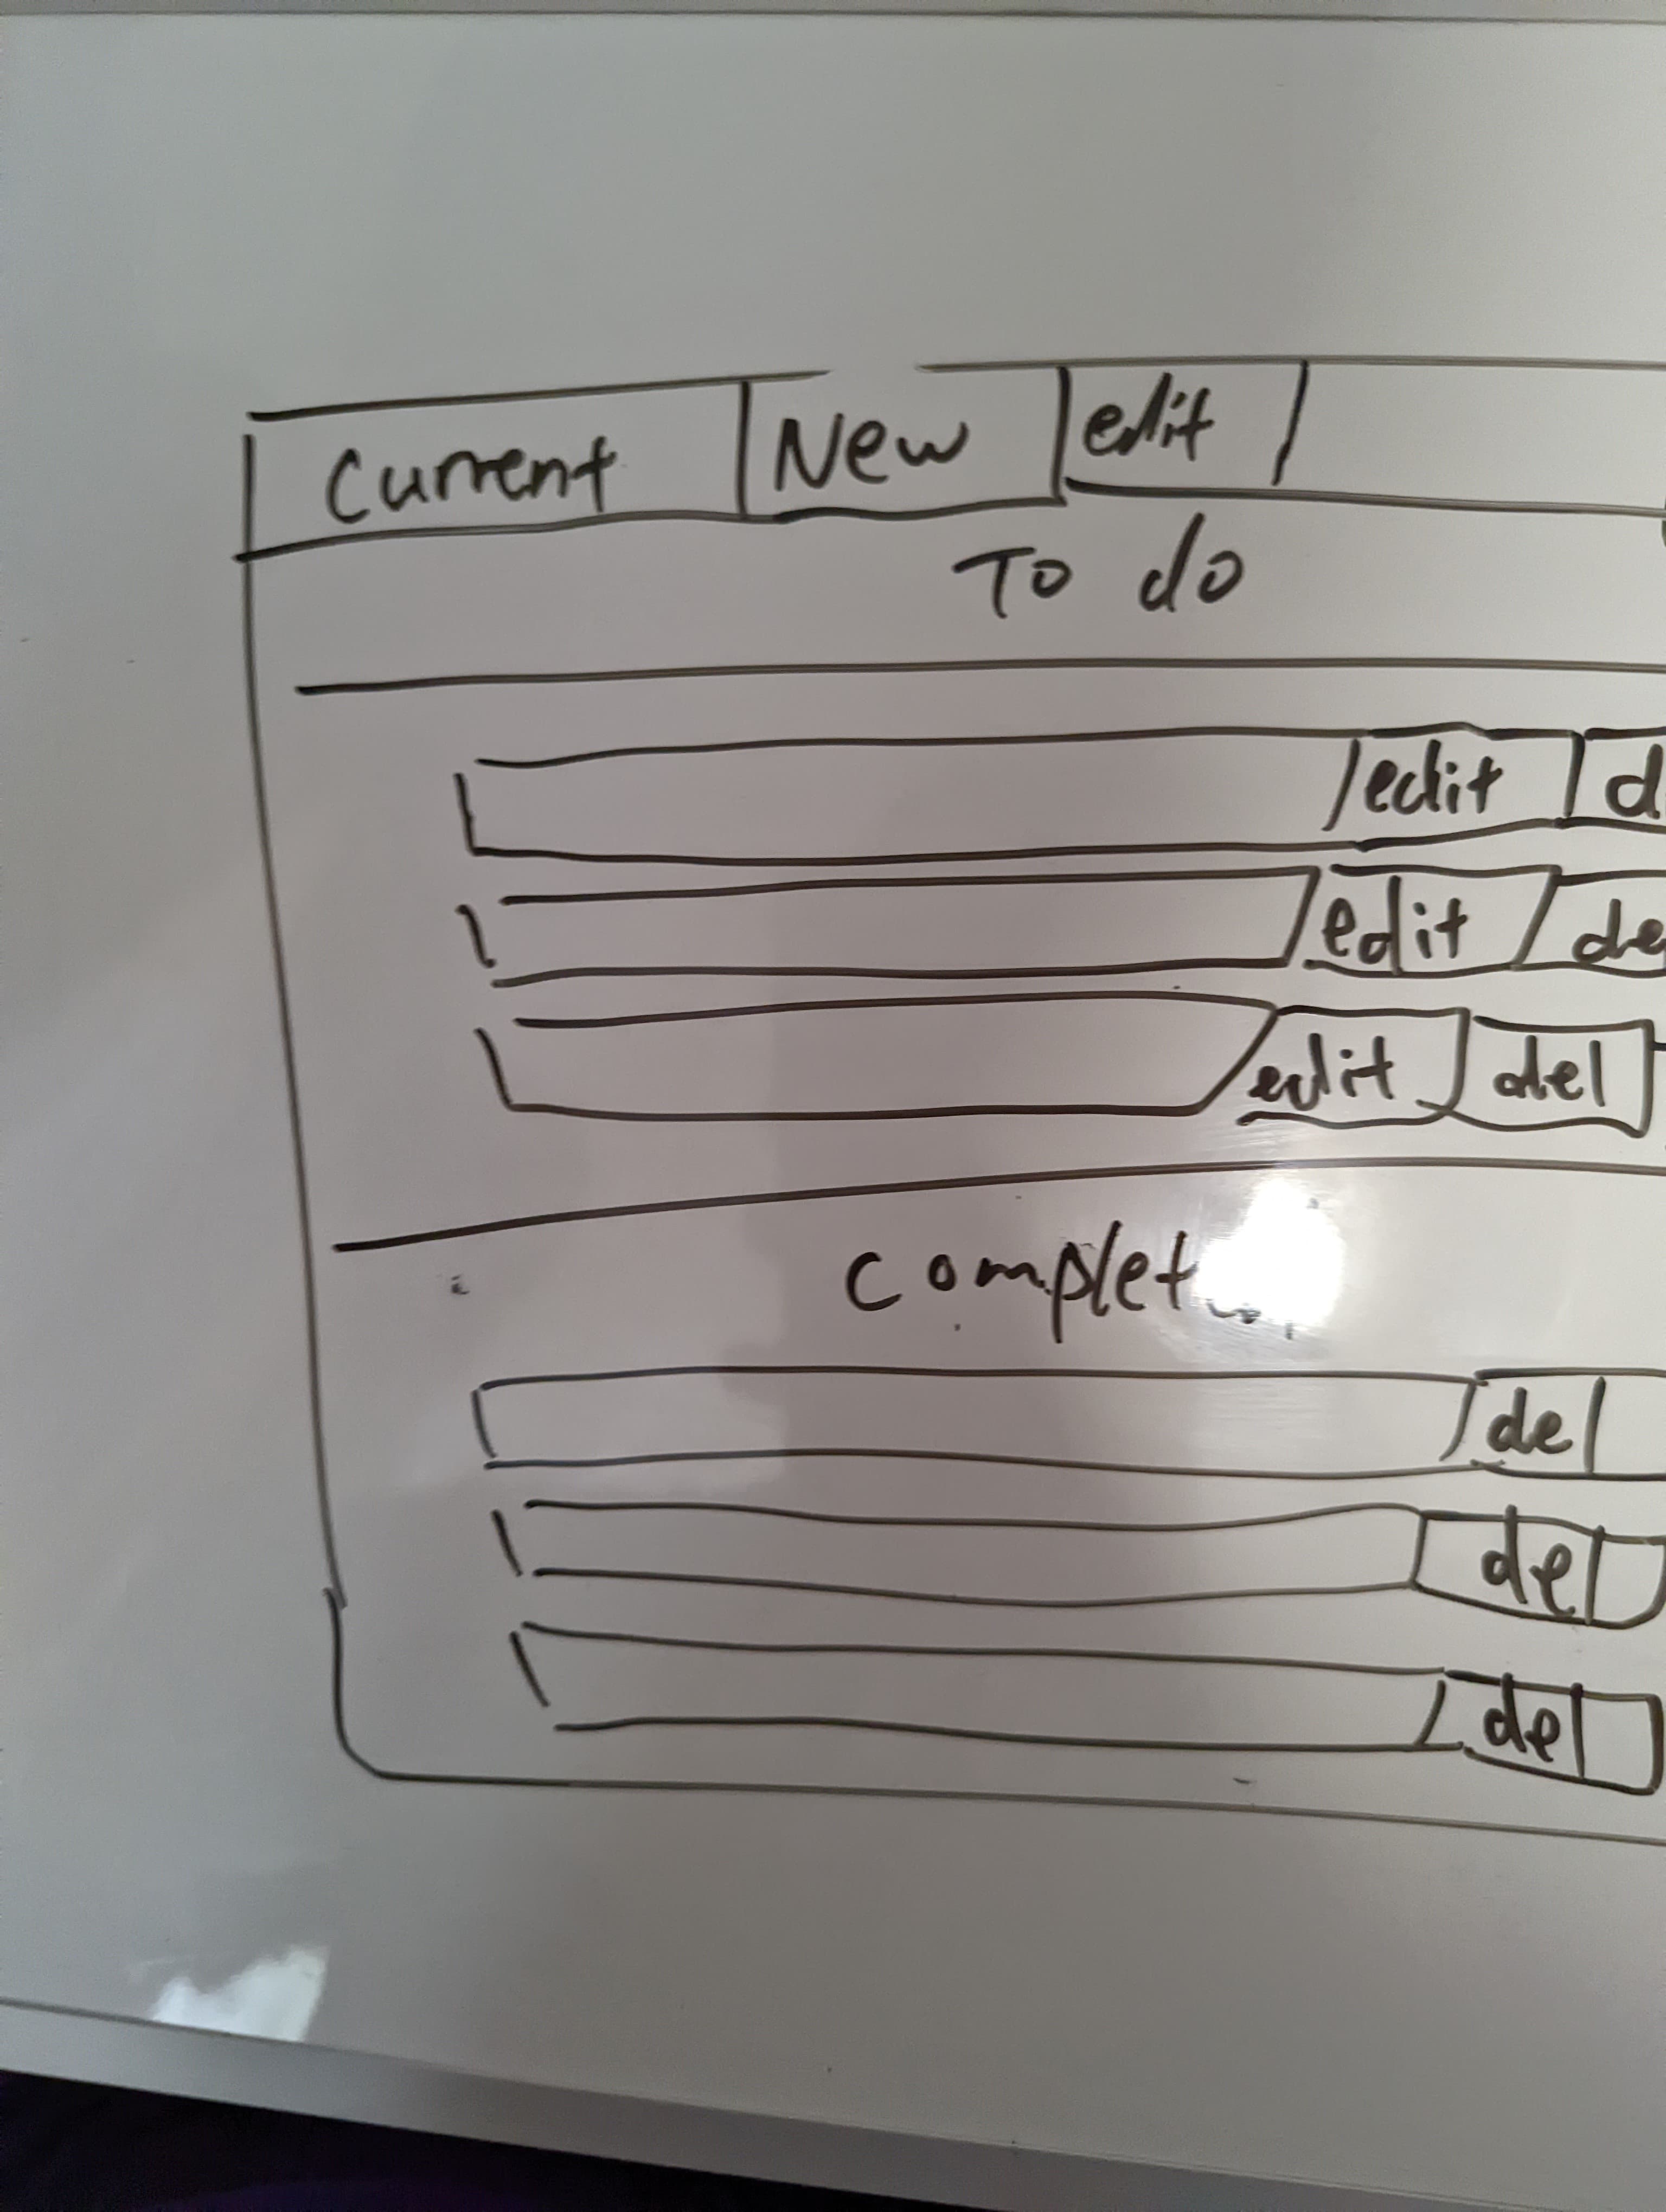 Current New edit
To do
edit d
edit de
edit del
del
del
del